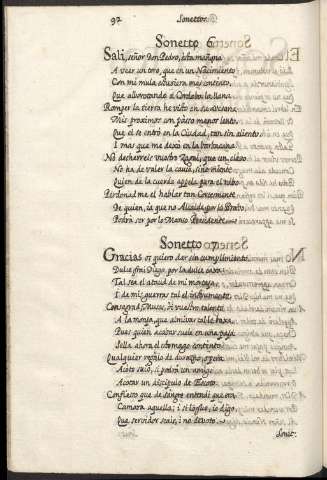 92 Sonettos.
Sonetto 6
Salí, señor Don Pedro, esta mañana
A veer un toro, que en un Nacimiento
Con mi mula estuviera mas contento,
Que alborotando a Cordoba la llana.
Romper la tierra he visto en su
Mis proximos con passo menos lento,
Que el se entró en la Ciudad, tan sin aliento,
I mas que me dexó en la barbacana.
No desherreis vuestro Zagal, que un clavo
No ha de valer la causa, si no miente
Quien de la cuerda appela para el rabo.
Perdonadme el hablar tan
De quien, ia que no Alcalde por lo Bravo
Podrá ser por lo Manso Presidente.
Sonetto 7
Gracias os quiero dar sin cumplimiento,
Dulce frai Diego, por la dulce caxa.
Tal sea el ataud de mi mortaja,
I de mis guerras tal el instrumento.
Consagrad, Musas, oi vuestro talento
A la monja, que almivar tal le baxa,
Pues quien acabar suele en una paja
Sella ahora el estomago contento.
Qualquier regalo de durazno, o pera
Aceto solo, si podrá un amigo
Acotar un discipulo de Escoto.
Confiesso que de sangre entendí que era
Camara aquella; i si lo fue, io digo,
Que servidor seais, i no devoto.
Sonet: